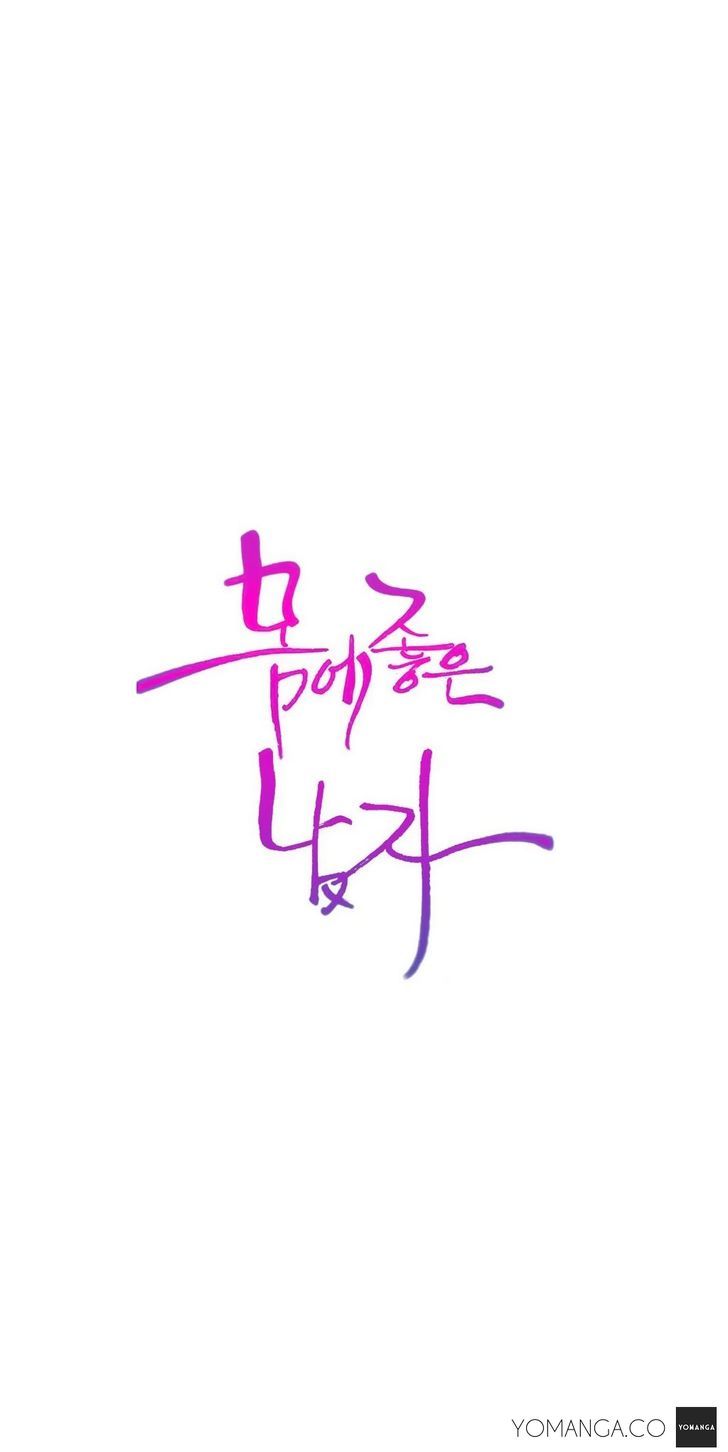 몸에 좋은
남자
YOMANGA.CO
YOMANGA